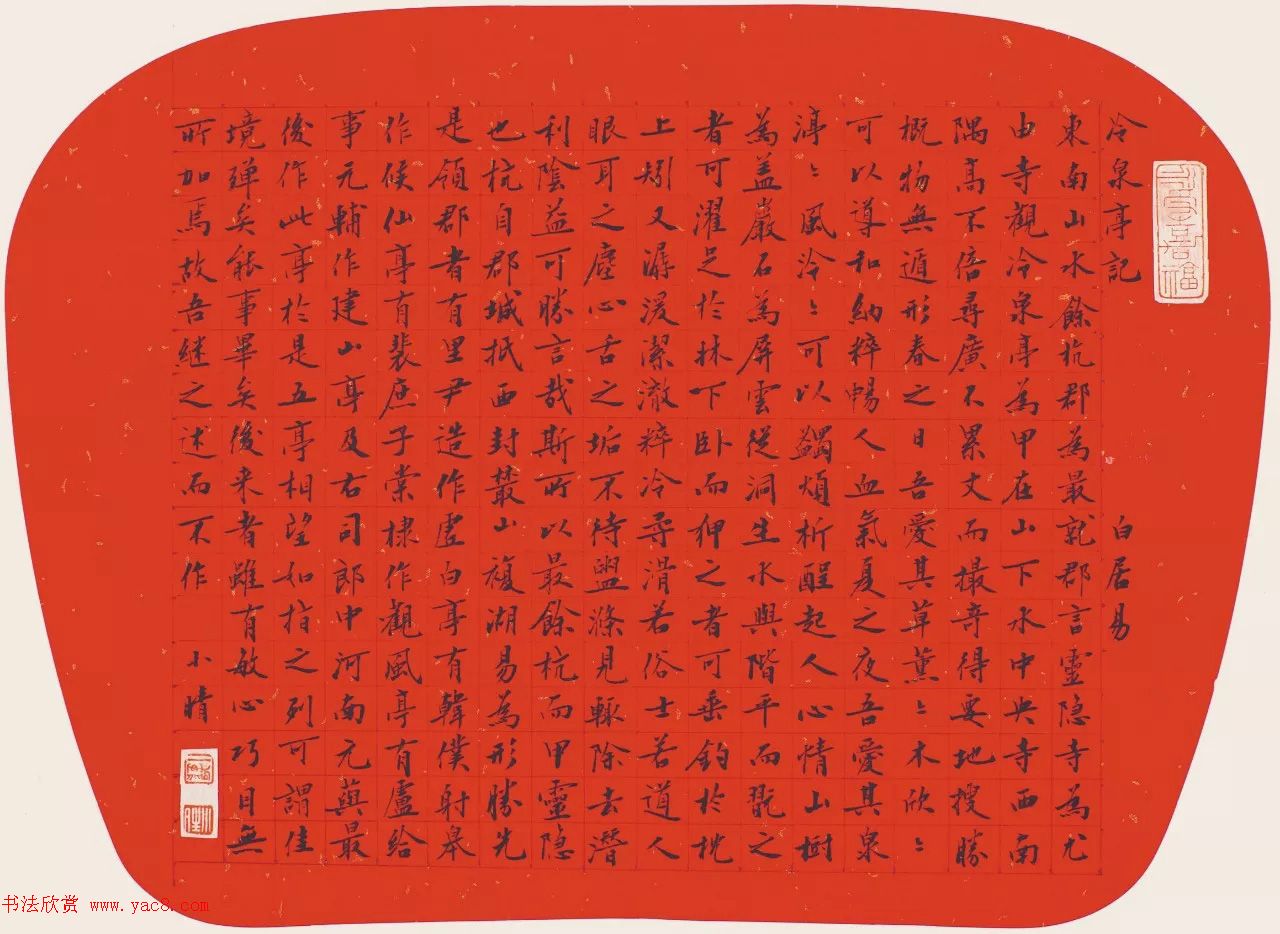 冷泉亭記 白居易
東南山水餘杭郡為最就郡言靈隐寺為尤
由寺觀冷泉亭為甲在山下水中央寺西南
隅髙不倍尋廣不累丈而撮竒得要地搜勝
概物無遁形春之日吾愛其草薰〻木欣〻
可以導和納粹暢人血氣夏之夜吾愛其泉
渟〻風泠〻可以蠲煩析酲起人心情山樹
為盖巖石為屏雲從洞生水與階平而翫之
者可濯足於牀下卧而狎之者可垂釣於枕
上矧又潺湲潔澈粹冷滑若俗士若道人
眼耳之塵心舌之垢不待盥滌見輙除去潛
利陰益可勝言哉斯所以最餘杭而甲靈隐
也杭自郡城抵西封叢山複湖易為形勝先
是領郡者有里尹造作虛白亭有韓僕射皋
作候仙亭有裴庶子棠棣作觀風亭有盧給
事元輔作建山亭及右司郎中河南元藇最
後作此亭於是五亭相望如指之列可謂佳
境殫矣能事畢矣後来者雖有敏心巧目無
所加焉故吾継之述而不作 小晴
书法欣赏 www.yac8.com